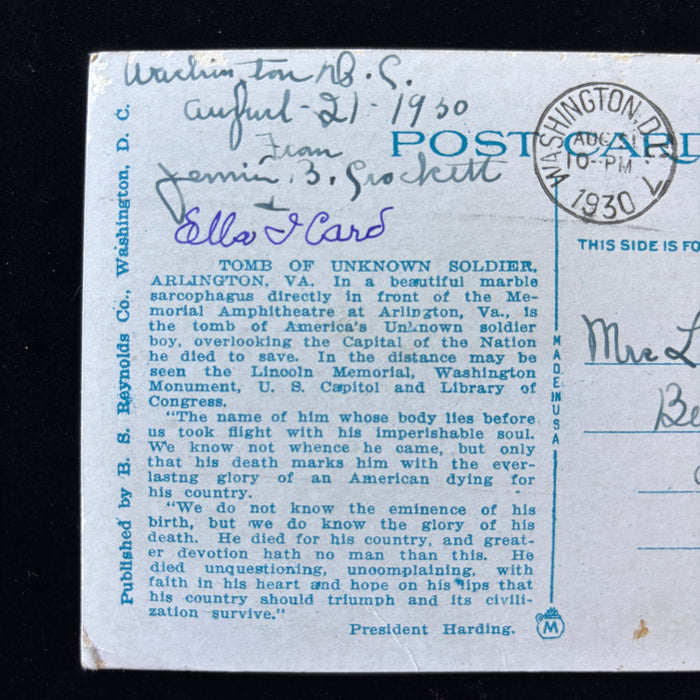 Washington D. C.
August - 21 - 1930
From
Jennie B. Crockett
Ella I Card
POST CARD
WASHINGTON, D.
AUG 21
10-PM
1930
THIS SIDE IS FO
Published by B. S. Reynolds Co., Washington, D. C.
TOMB OF UNKNOWN SOLDIER,
ARLINGTON, VA. In a beautiful marble
sarcophagus directly in front of the Me-
morial Amphitheatre at Arlington, Va., is
the tomb of America's Unknown soldier
boy, overlooking the Capital of the Nation
he died to save. In the distance may be
seen the Lincoln Memorial, Washington
Monument, U. S. Capitol and Library of
Congress.
"The name of him whose body lies before
us took flight with his imperishable soul.
We know not whence he came, but only
that his death marks him with the ever-
lastng glory of an American dying for
his country.
"We do not know the eminence of his
birth, but we do know the glory of his
death. He died for his country, and great-
er devotion hath no man than this. He
died unquestioning, uncomplaining, with
faith in his heart and hope on his lips that
his country should triumph and its civili-
zation survive."
President Harding.
MADE IN USA
M
Mrs L
Be